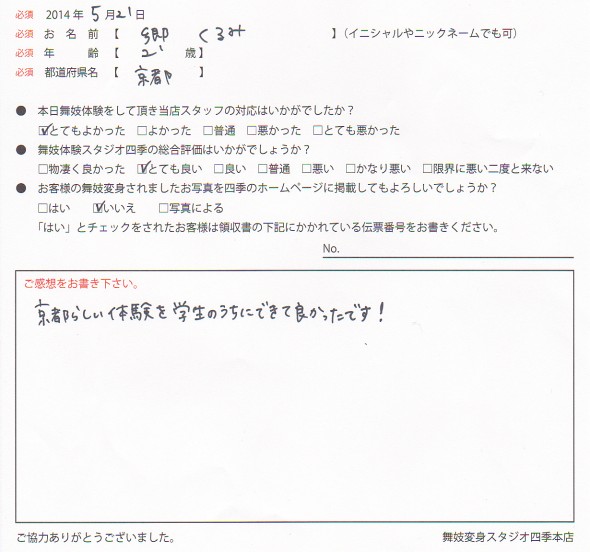 必須 2014年 5月21日
必須 お名前【 郷 くるみ 】（イニシャルやニックネームでも可）
必須 年 齢【 21 歳】
必須 都道府県名【 京都 】
● 本日舞妓体験をして頂き当店スタッフの対応はいかがでしたか？
☑とてもよかった □よかった □普通 □悪かった □とても悪かった
● 舞妓体験スタジオ四季の総合評価はいかがでしょうか？
□物凄く良かった ☑とても良い □良い □普通 □悪い □かなり悪い □限界に悪い二度と来ない
● お客様の舞妓変身されましたお写真を四季のホームページに掲載してもよろしいでしょうか？
□はい ☑いいえ □写真による
「はい」とチェックをされたお客様は領収書の下記にかかれている伝票番号をお書きください。
No.
ご感想をお書き下さい。
京都らしい体験を学生のうちにできて良かったです！
ご協力ありがとうございました。 舞妓変身スタジオ四季本店